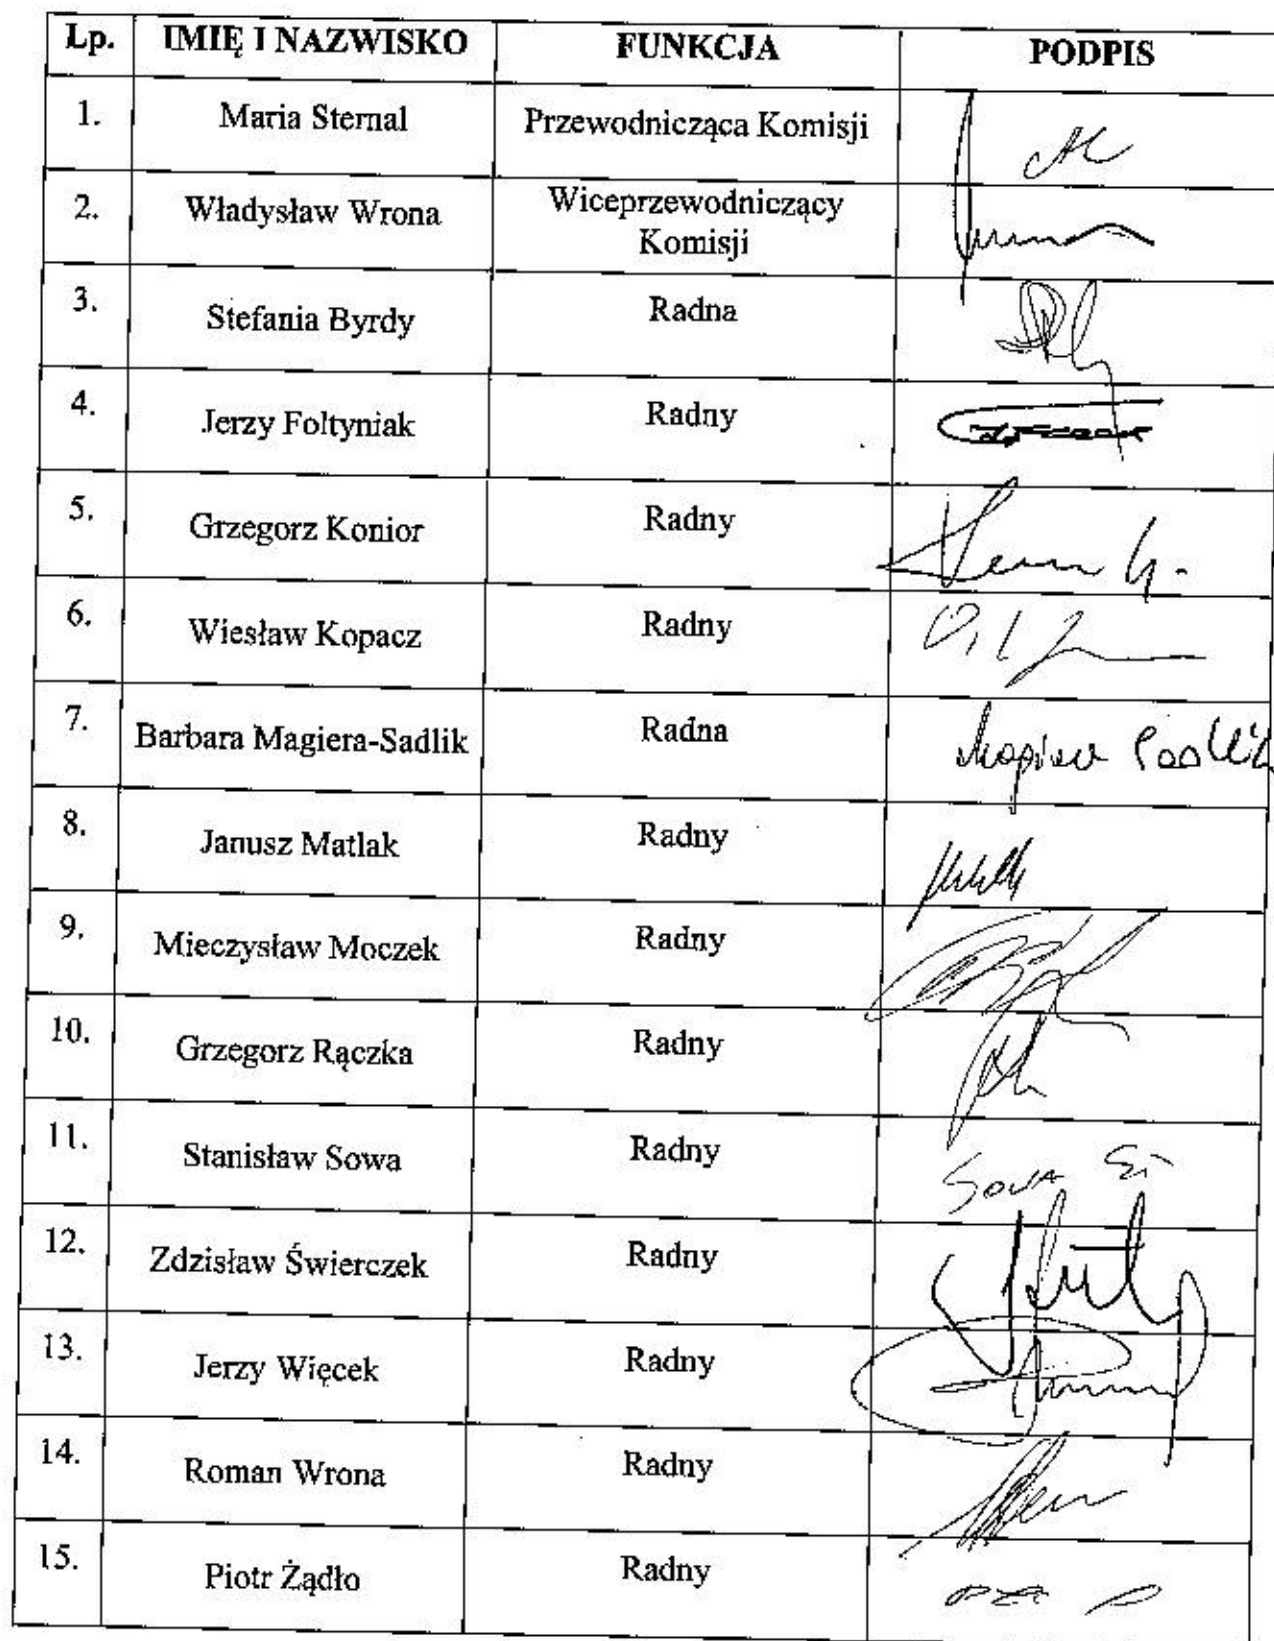 Lp. IMIĘ I NAZWISKO FUNKCJA PODPIS
1. Maria Sternal Przewodnicząca Komisji
2. Władysław Wrona Wiceprzewodniczący
Komisji
3. Stefania Byrdy Radna
4. Jerzy Foltyniak Radny
5. Grzegorz Konior Radny
6. Wiesław Kopacz Radny
7. Barbara Magiera-Sadlik Radna
8. Janusz Matlak Radny
9. Mieczysław Moczek Radny
10. Grzegorz Rączka Radny
11. Stanisław Sowa Radny Sowa St
12. Zdzisław Świerczek Radny
13. Jerzy Więcek Radny
14. Roman Wrona Radny
15. Piotr Żądło Radny